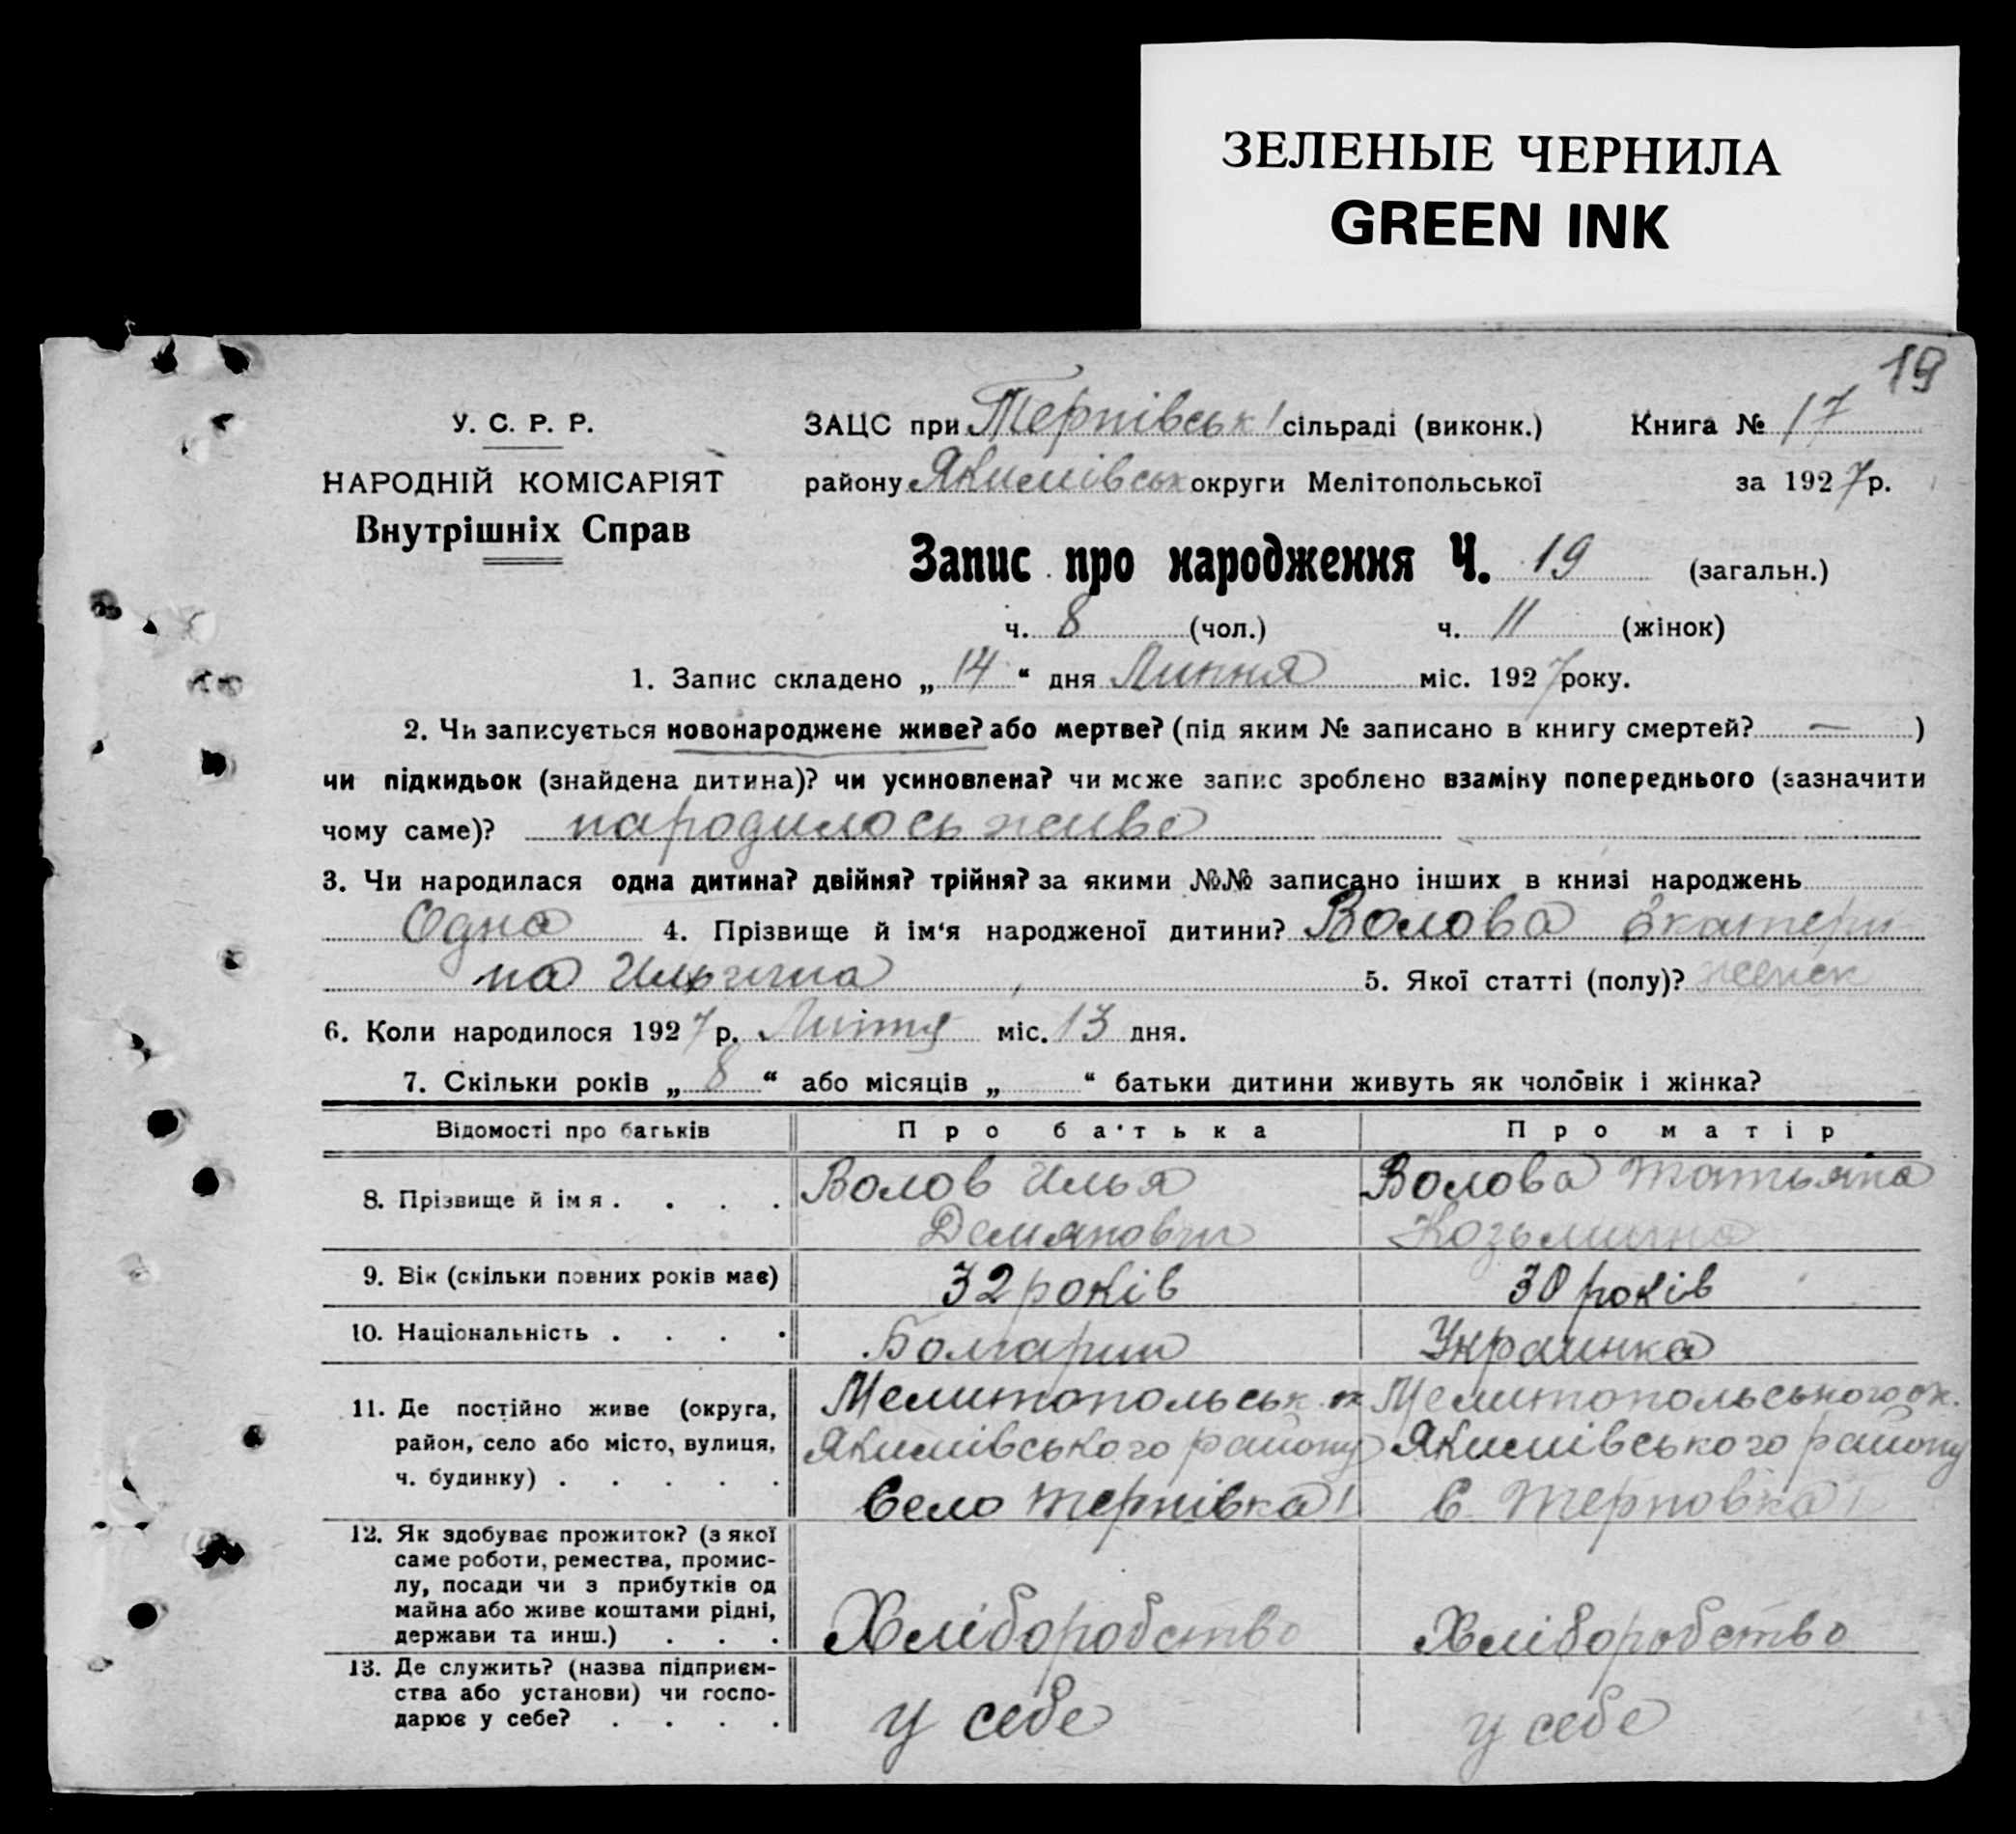 ЗЕЛЕНЫЕ ЧЕРНИЛА
GREEN INK
19
У. С. Р. Р.
НАРОДНІЙ КОМІСАРІЯТ
Внутрішніх Справ
ЗАЦС при Терпівськ сільраді (виконк.) Книга № 17
району Якимівськ округи Мелітопольської за 1927 р.
Запис про народження Ч. 19 (загальн.)
ч. 8 (чол.) ч. 11 (жінок)
1. Запис складено „ 14 “ дня Липня міс. 1927 року.
2. Чи записується новонароджене живе? або мертве? (під яким № записано в книгу смертей? — )
чи підкидьок (знайдена дитина)? чи усиновлена? чи може запис зроблено взаміну попереднього (зазначити
чому саме)? народилось живе
3. Чи народилася одна дитина? двійня? трійня? за якими №№ записано інших в книзі народжень
Одна 4. Прізвище й ім‘я народженої дитини? Волова Екатери
на Ильична 5. Якої статті (полу)? женск
6. Коли народилося 1927 р. Липня міс. 13 дня.
7. Скільки років „ 8 “ або місяців „ “ батьки дитини живуть як чоловік і жінка?
Відомості про батьків Про батька Про матір
8. Прізвище й імя . . . . Волов Илья Волова Татьяна
Демянович Козьминна
9. Вік (скільки повних років має) 32 років 30 років
10. Національність . . . . Болгарин Украинка
11. Де постійно живе (округа, Мелитопольськ. ок Мелитопольського ок.
район, село або місто, вулиця, Якимівського району Якимівського району
ч. будинку) . . . . . Село Терпівка С. Терповка
12. Як здобуває прожиток? (з якої
саме роботи, ремества, промис-
лу, посади чи з прибутків од
майна або живе коштами рідні,
держави та инш.) . . . Хліборобство Хліборобство
13. Де служить? (назва підприєм-
ства або установи) чи госпо-
дарює у себе? . . . . у себе у себе